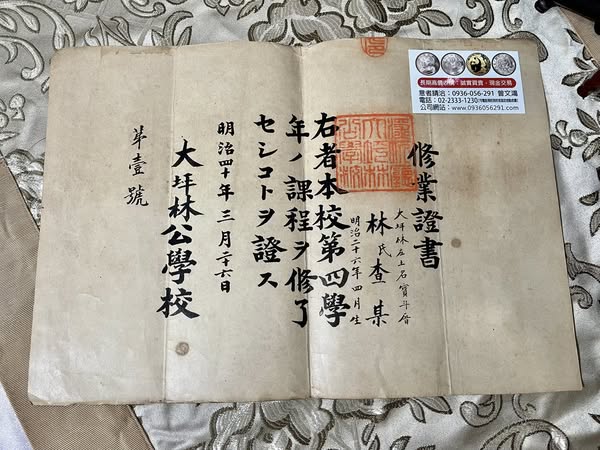 修業證書
大坪林庄土名寶斗厝
林氏査某
明治二十六年四月生
右者本校第四學
年ノ課程ヲ修了
セシコトヲ證ス
明治四十年三月二十六日
大坪林公學校
第壹號
長期高價收購・誠實買賣・現金交易
意者請洽：0936-056-291 曾文鴻
電話：02-2333-1230
公司網站：www.0936056291.com